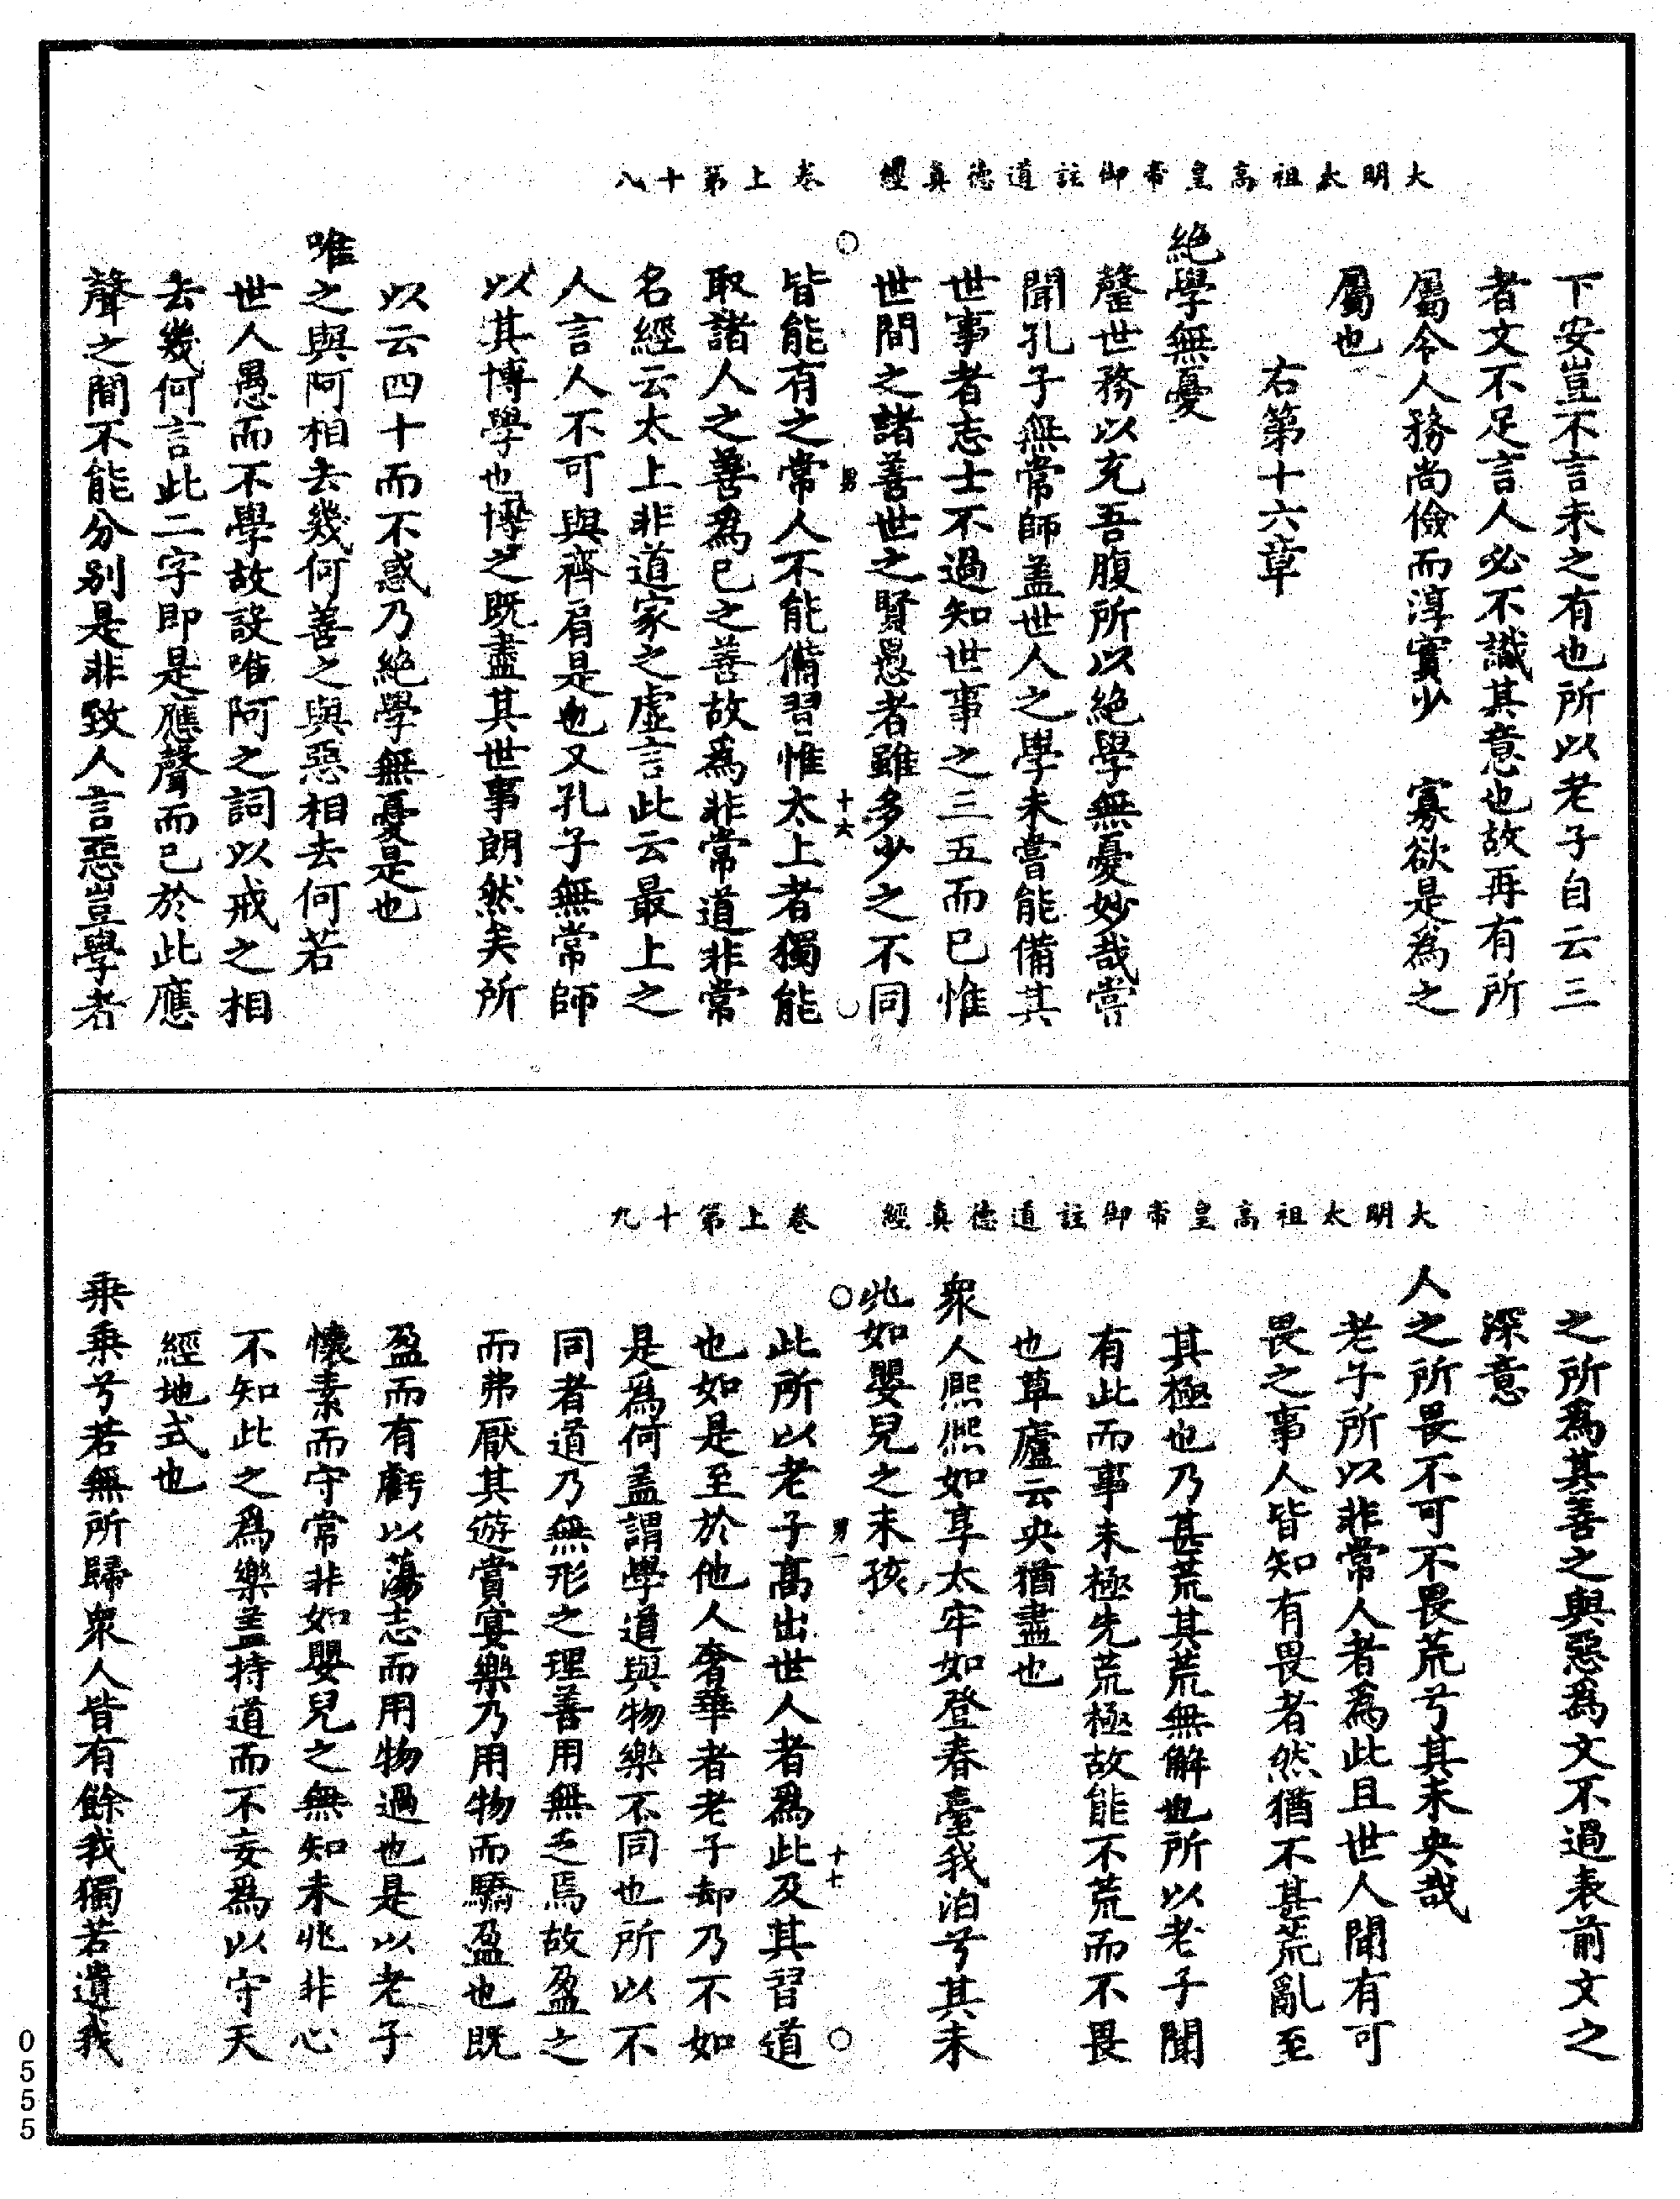 大明太祖高皇帝御註道德真經　卷上第十八
下安豈不言未之有也所以老子自云三
者文不足言人必不識其意也故再有所
屬令人務尚儉而淳實少　寡欲是為之
屬也
右第十六章
絕學無憂
罄世務以充吾腹所以絕學無憂妙哉嘗
聞孔子無常師蓋世人之學未嘗能備其
世事者志士不過知世事之三五而已惟
世間之諸善世之賢愚者雖多少之不同
男
十六
皆能有之常人不能備習惟太上者獨能
取諸人之善為已之善故為非常道非常
名經云太上非道家之虛言此云最上之
人言人不可與齊肩是也又孔子無常師
以其博學也博之既盡其世事朗然矣所
以云四十而不惑乃絕學無憂是也
唯之與阿相去幾何善之與惡相去何若
世人愚而不學故設唯阿之詞以戒之相
去幾何言此二字即是應聲而已於此應
聲之間不能分別是非致人言惡豈學者
大明太祖高皇帝御註道德真經　卷上第十九
之所為其善之與惡為文不過表前文之
深意
人之所畏不可不畏荒兮其未央哉
老子所以非常人者為此且世人聞有可
畏之事人皆知有畏者然猶不甚荒亂至
其極也乃甚荒其荒無解也所以老子聞
有此而事未極先荒極故能不荒而不畏
也草廬云央猶盡也
衆人熙熙如享太牢如登春臺我泊兮其未
兆如嬰兒之未孩
男一
十七
此所以老子高出世人者為此及其習道
也如是至於他人奢華者老子却乃不如
是為何蓋謂學道與物樂不同也所以不
同者道乃無形之理善用無乏焉故盈之
而弗厭其遊賞宴樂乃用物而驕盈也既
盈而有虧以蕩志而用物過也是以老子
懷素而守常非如嬰兒之無知未兆非心
不知此之為樂蓋持道而不妄為以守天
經地式也
乘乘兮若無所歸衆人皆有餘我獨若遺我
0555